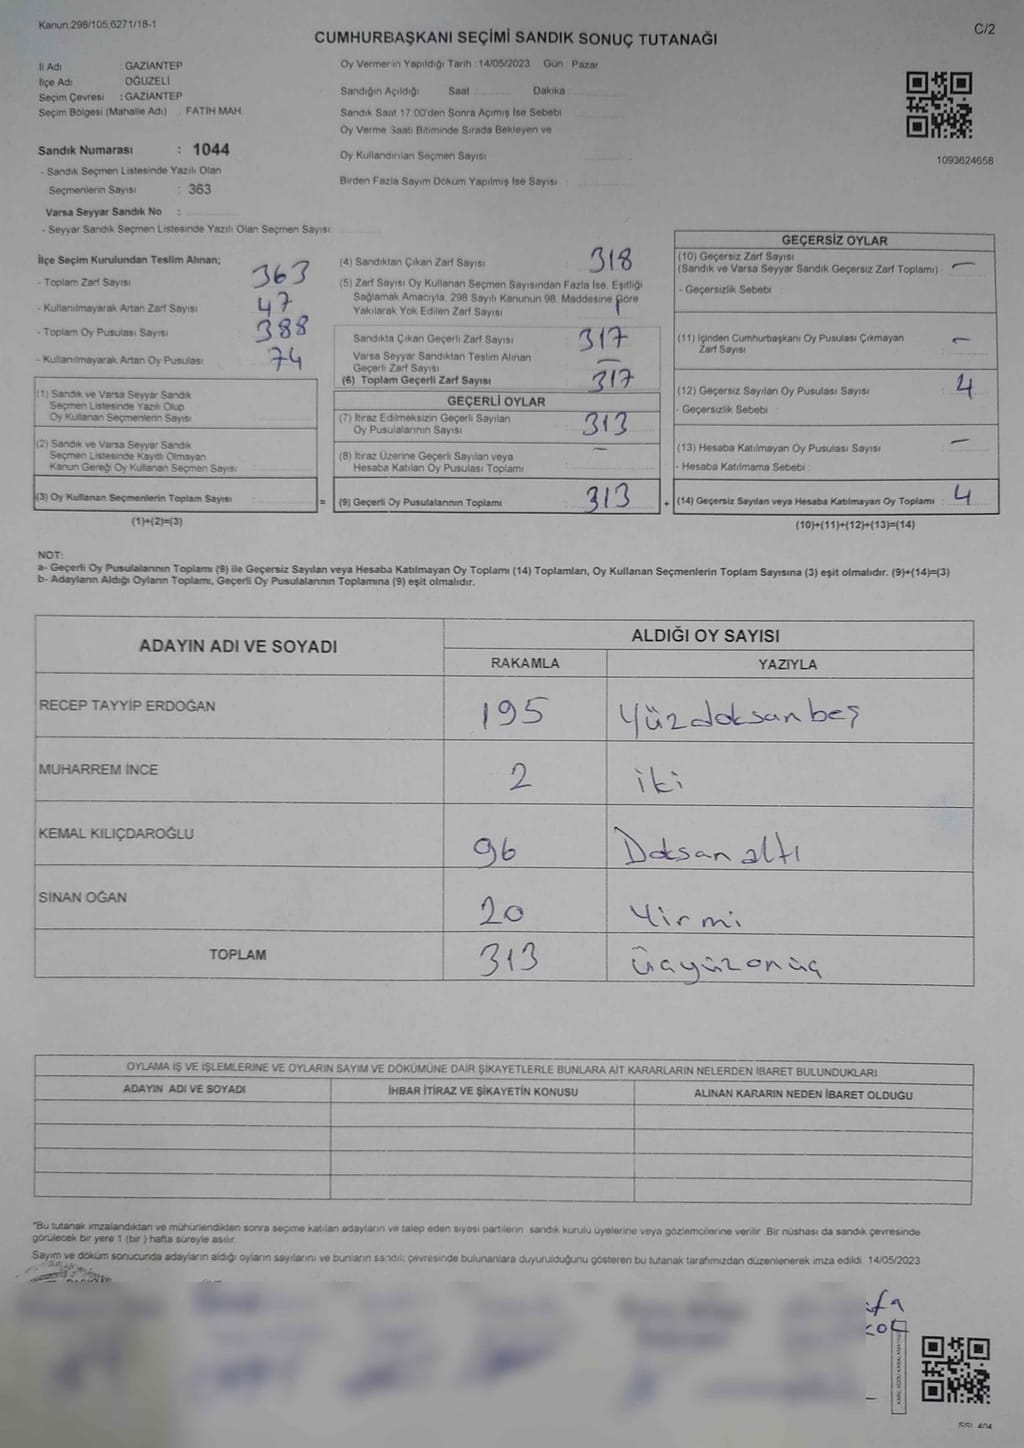 Kanun:298/105;6271/18-1
C/2
CUMHURBAŞKANI SEÇİMİ SANDIK SONUÇ TUTANAĞI
İl Adı : GAZİANTEP
İlçe Adı : OĞUZELİ
Seçim Çevresi : GAZİANTEP
Seçim Bölgesi (Mahalle Adı) : FATİH MAH.
Sandık Numarası : 1044
- Sandık Seçmen Listesinde Yazılı Olan
Seçmenlerin Sayısı : 363
Varsa Seyyar Sandık No :
- Seyyar Sandık Seçmen Listesinde Yazılı Olan Seçmen Sayısı:
Oy Vermenin Yapıldığı Tarih :14/05/2023 Gün : Pazar
Sandığın Açıldığı Saat : Dakika :
Sandık Saat 17.00'den Sonra Açılmış İse Sebebi :
Oy Verme Saati Bitiminde Sırada Bekleyen ve
Oy Kullandırılan Seçmen Sayısı :
Birden Fazla Sayım Döküm Yapılmış İse Sayısı :
1093624658
İlçe Seçim Kurulundan Teslim Alınan;
- Toplam Zarf Sayısı 363
- Kullanılmayarak Artan Zarf Sayısı 47
- Toplam Oy Pusulası Sayısı 388
- Kullanılmayarak Artan Oy Pusulası 74
(1) Sandık ve Varsa Seyyar Sandık
Seçmen Listesinde Yazılı Olup
Oy Kullanan Seçmenlerin Sayısı
(2) Sandık ve Varsa Seyyar Sandık
Seçmen Listesinde Kayıtlı Olmayan
Kanun Gereği Oy Kullanan Seçmen Sayısı
(3) Oy Kullanan Seçmenlerin Toplam Sayısı =
(1)+(2)=(3)
(4) Sandıktan Çıkan Zarf Sayısı 318
(5) Zarf Sayısı Oy Kullanan Seçmen Sayısından Fazla İse, Eşitliği
Sağlamak Amacıyla, 298 Sayılı Kanunun 98. Maddesine Göre
Yakılarak Yok Edilen Zarf Sayısı 1
Sandıkta Çıkan Geçerli Zarf Sayısı 317
Varsa Seyyar Sandıktan Teslim Alınan
Geçerli Zarf Sayısı —
(6) Toplam Geçerli Zarf Sayısı 317
GEÇERLİ OYLAR
(7) İtiraz Edilmeksizin Geçerli Sayılan
Oy Pusulalarının Sayısı 313
(8) İtiraz Üzerine Geçerli Sayılan veya
Hesaba Katılan Oy Pusulası Toplamı —
(9) Geçerli Oy Pusulalarının Toplamı 313 +
GEÇERSİZ OYLAR
(10) Geçersiz Zarf Sayısı
(Sandık ve Varsa Seyyar Sandık Geçersiz Zarf Toplamı) —
- Geçersizlik Sebebi :
(11) İçinden Cumhurbaşkanı Oy Pusulası Çıkmayan
Zarf Sayısı —
(12) Geçersiz Sayılan Oy Pusulası Sayısı 4
- Geçersizlik Sebebi :
(13) Hesaba Katılmayan Oy Pusulası Sayısı —
- Hesaba Katılmama Sebebi :
(14) Geçersiz Sayılan veya Hesaba Katılmayan Oy Toplamı 4
(10)+(11)+(12)+(13)=(14)
NOT:
a- Geçerli Oy Pusulalarının Toplamı (9) ile Geçersiz Sayılan veya Hesaba Katılmayan Oy Toplamı (14) Toplamları, Oy Kullanan Seçmenlerin Toplam Sayısına (3) eşit olmalıdır. (9)+(14)=(3)
b- Adayların Aldığı Oyların Toplamı, Geçerli Oy Pusulalarının Toplamına (9) eşit olmalıdır.
ADAYIN ADI VE SOYADI
ALDIĞI OY SAYISI
RAKAMLA YAZIYLA
RECEP TAYYİP ERDOĞAN 195 Yüzdoksanbeş
MUHARREM İNCE 2 iki
KEMAL KILIÇDAROĞLU 96 Doksanaltı
SİNAN OĞAN 20 Yirmi
TOPLAM 313 Üçyüzonüç
OYLAMA İŞ VE İŞLEMLERİNE VE OYLARIN SAYIM VE DÖKÜMÜNE DAİR ŞİKAYETLERLE BUNLARA AİT KARARLARIN NELERDEN İBARET BULUNDUKLARI
ADAYIN ADI VE SOYADI İHBAR İTİRAZ VE ŞİKAYETİN KONUSU ALINAN KARARIN NEDEN İBARET OLDUĞU
*Bu tutanak imzalandıktan ve mühürlendikten sonra seçime katılan adayların ve talep eden siyasi partilerin sandık kurulu üyelerine veya gözlemcilerine verilir. Bir nüshası da sandık çevresinde
görülecek bir yere 1 (bir) hafta süreyle asılır.
Sayım ve döküm sonucunda adayların aldığı oyların sayılarını ve bunların sandık çevresinde bulunanlara duyurulduğunu gösteren bu tutanak tarafımızdan düzenlenerek imza edildi. 14/05/2023